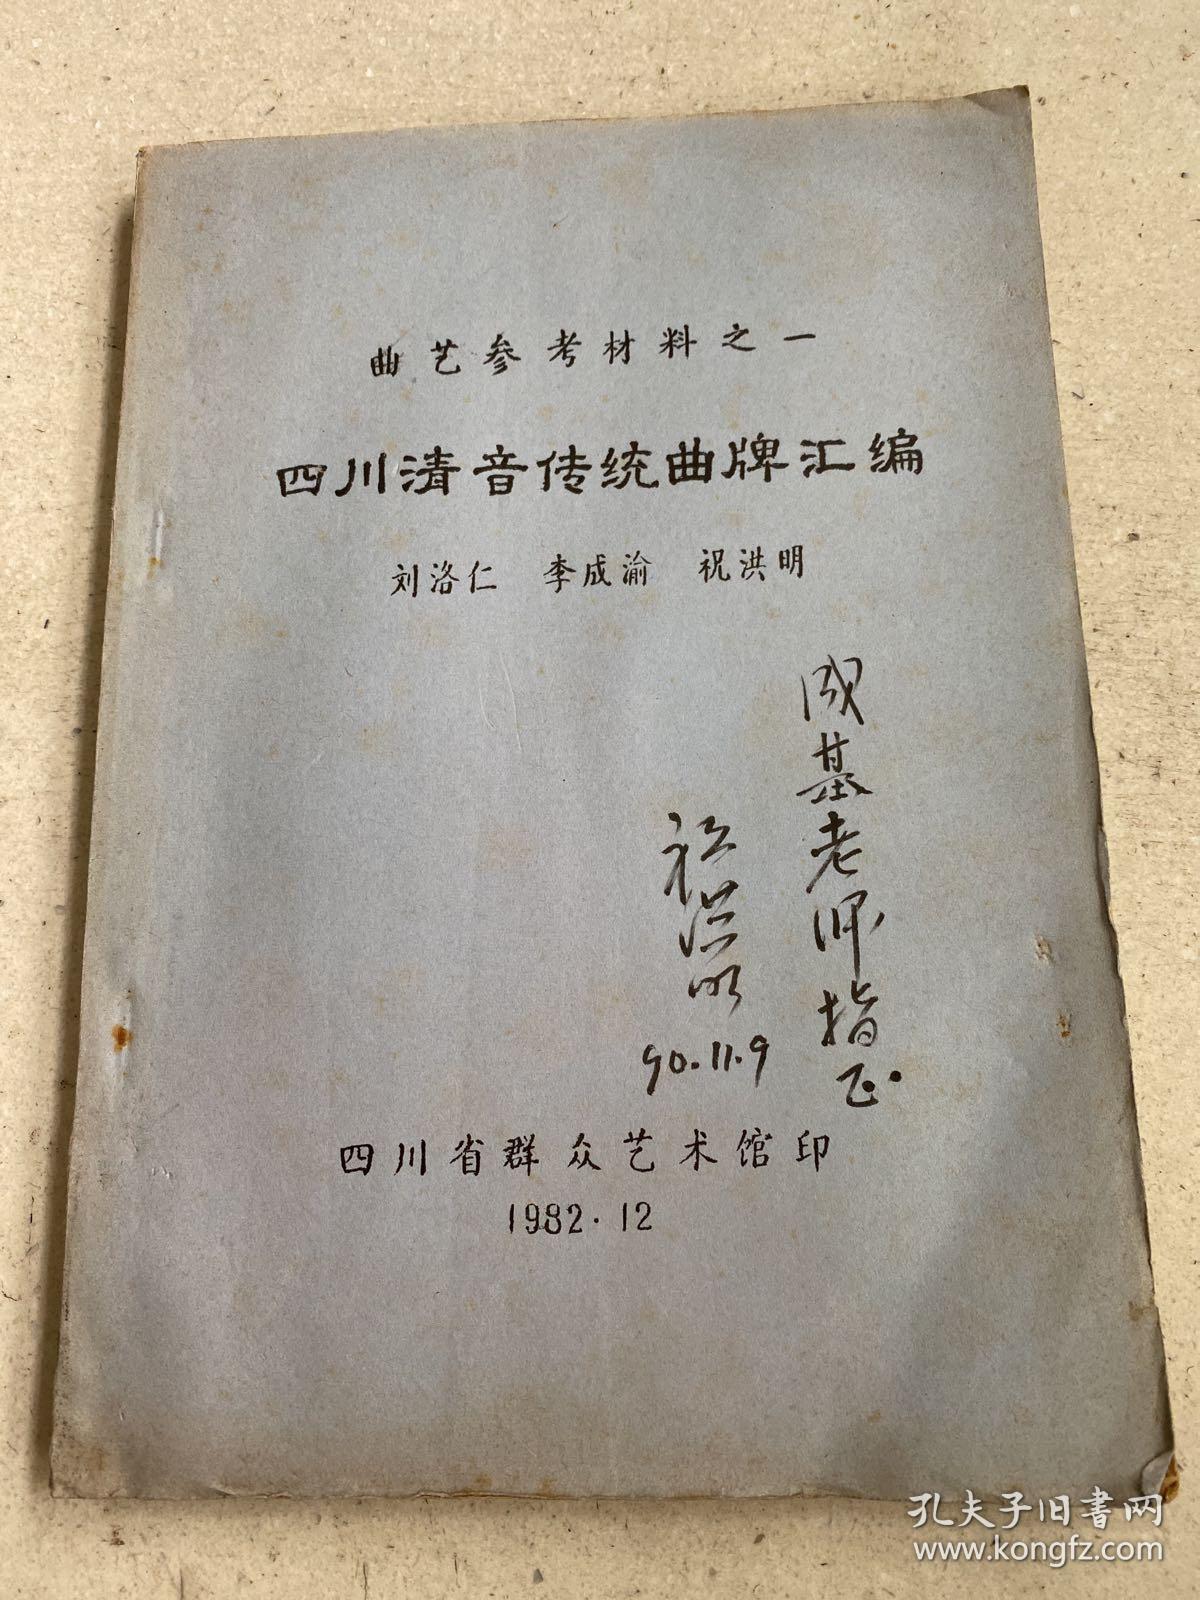 曲艺参考材料之一
四川清音传统曲牌汇编
刘洛仁 李成渝 祝洪明
成基老师指正.
祝洪明
90.11.9
四川省群众艺术馆印
1982.12
孔夫子旧书网
www.kongfz.com